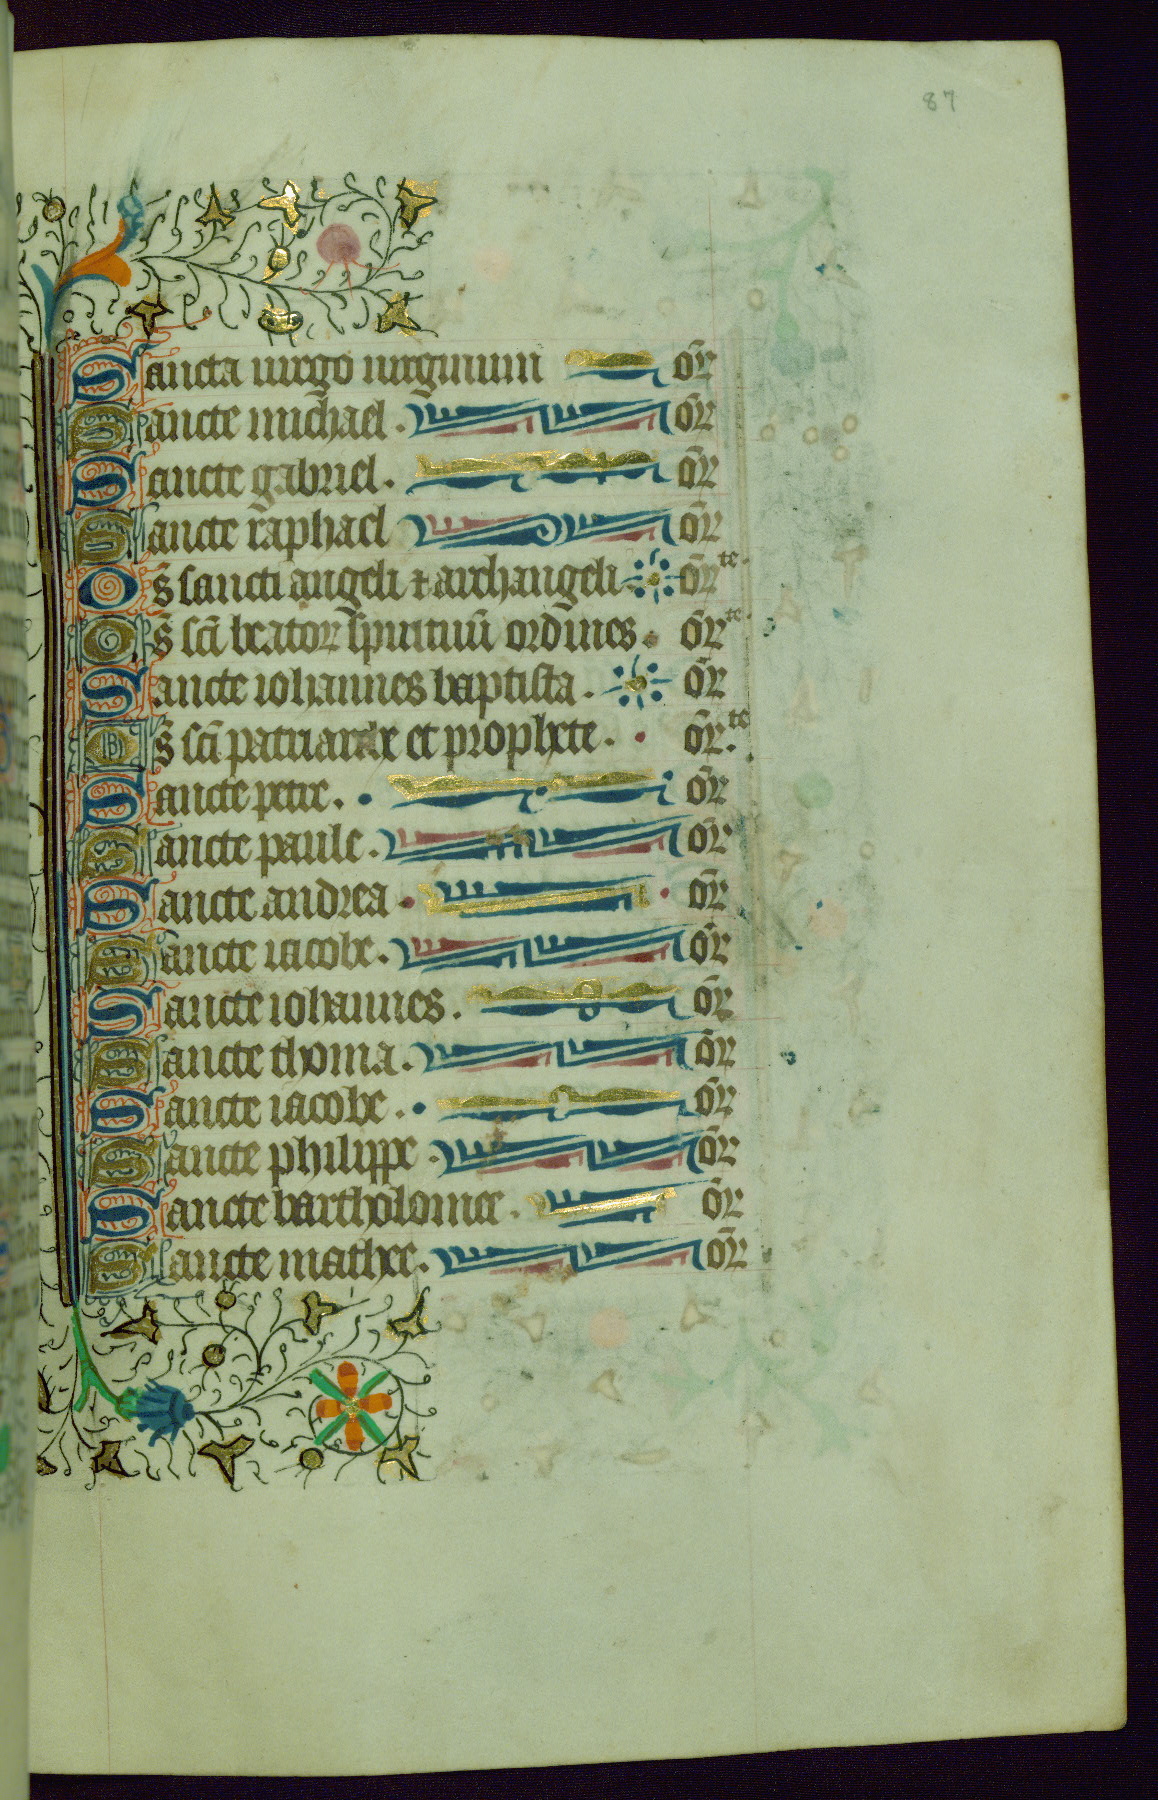 87
Sancta uirgo uirginum or̄
Sancte michael . or̄
Sancte gabriel . or̄
Sancte raphael or̄
Om̄s sancti angeli ⁊ archangeli or̄te.
Om̄s sc̄i beatoꝝ spirituū ordines . or̄te.
Sancte iohannes baptista . or̄
Om̄s sc̄i patriarche et prophete . or̄.te
Sancte petre . or̄
Sancte paule . or̄
Sancte andrea . or̄
Sancte iacobe . or̄
Sancte iohannes . or̄
Sancte thoma . or̄
Sancte iacobe . or̄
Sancte philippe . or̄
Sancte bartholomee . or̄
Sancte mathee . or̄